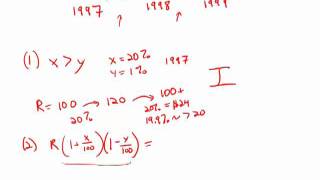 1997 1998 1999
(1) x > y x = 20% 1997
y = 1%
I
R = 100 → 120 → 100+
20% = $24
19.9% ~ > 20
(2) R(1+x/100)(1-y/100) =